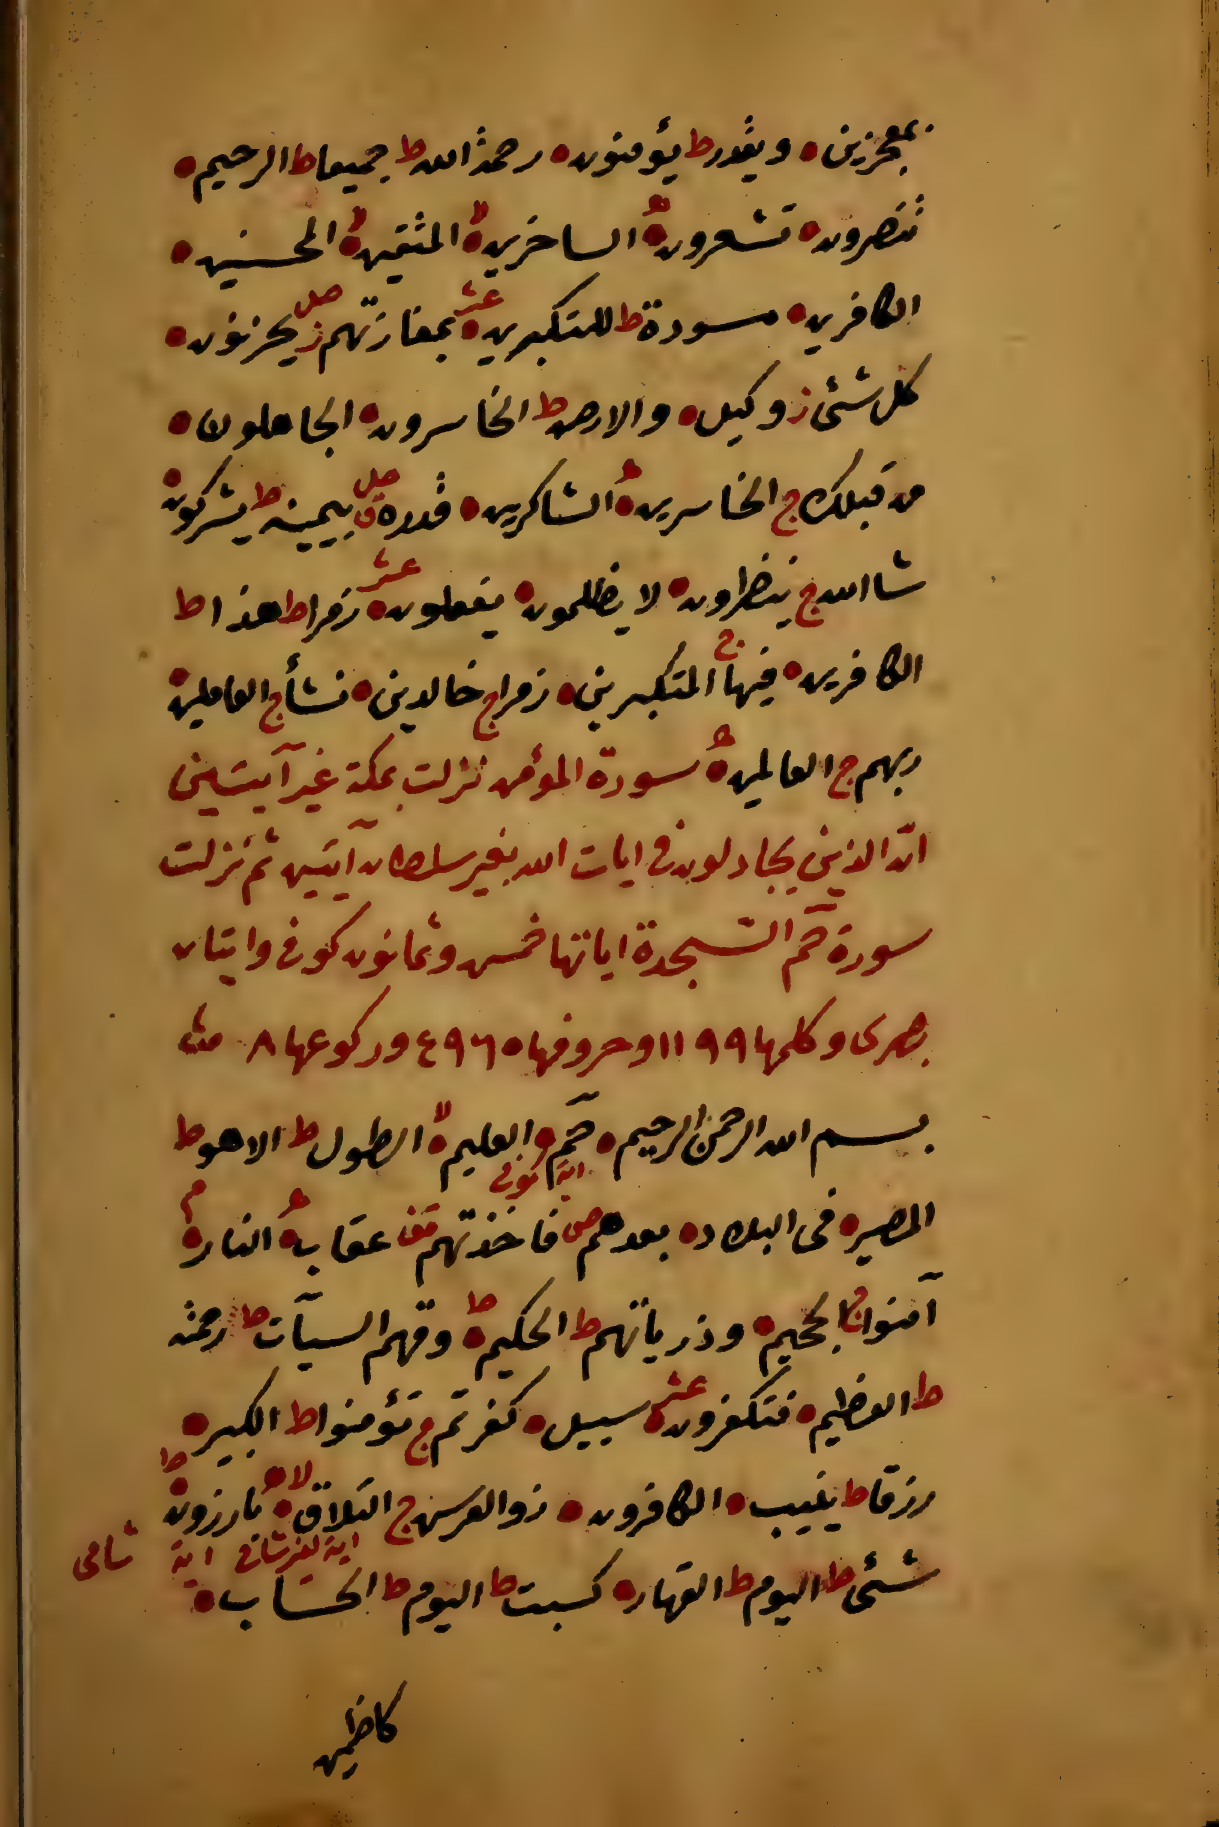 بمعجزين ويقدر ط يؤمنون رحمة الله ط جميعا ط الرحيم
تنصرون تشعرون لا الساخرين لا المتقين لا المحسنين
الكافرين مسودة ط للمتكبرين عشر بمفازتهم ز صلى يحزنون
كل شئ ز وكيل والارض ط الخاسرون الجاهلون
من قبلك ج الخاسرين الشاكرين قدره ق صلى بيمينه ط يشركون
شا الله ج ينظرون لا يظلمون يفعلون عشر زمرا ط هذا ط
الكافرين فيها ج المتكبرين زمرا ج خالدين نشأ ج العاملين
ربهم ج العالمين سورة المؤمن نزلت بمكة غير آيتين
ان الذين يجادلون في ايات الله بغير سلطان آيتين ثم نزلت
سورة حم السجدة اياتها خمس وثمانون كوفى واثنان
بصرى وكلمها ١١٩٩ وحروفها ٤٩٦٠ وركوعها ٨
بسم الله الرحمن الرحيم حم العليم لا الطول ط الا هو ط
اية كوفى
المصير فى البلاد بعدهم ص فاخذتهم قف عقاب النار م
آمنوا ج الجحيم وذرياتهم ط الحكيم ط وقهم السيآت ط رحمته
ط العظيم فتكفرون عشر سبيل كفرتم ج تؤمنوا ط الكبير
رزقا ط ينيب الكافرون ذو العرش ج التلاق لا بارزون ط
اية لغير شامى اية شامى
شئ ط اليوم ط القهار كسبت ط اليوم ط الحساب
كاظمين